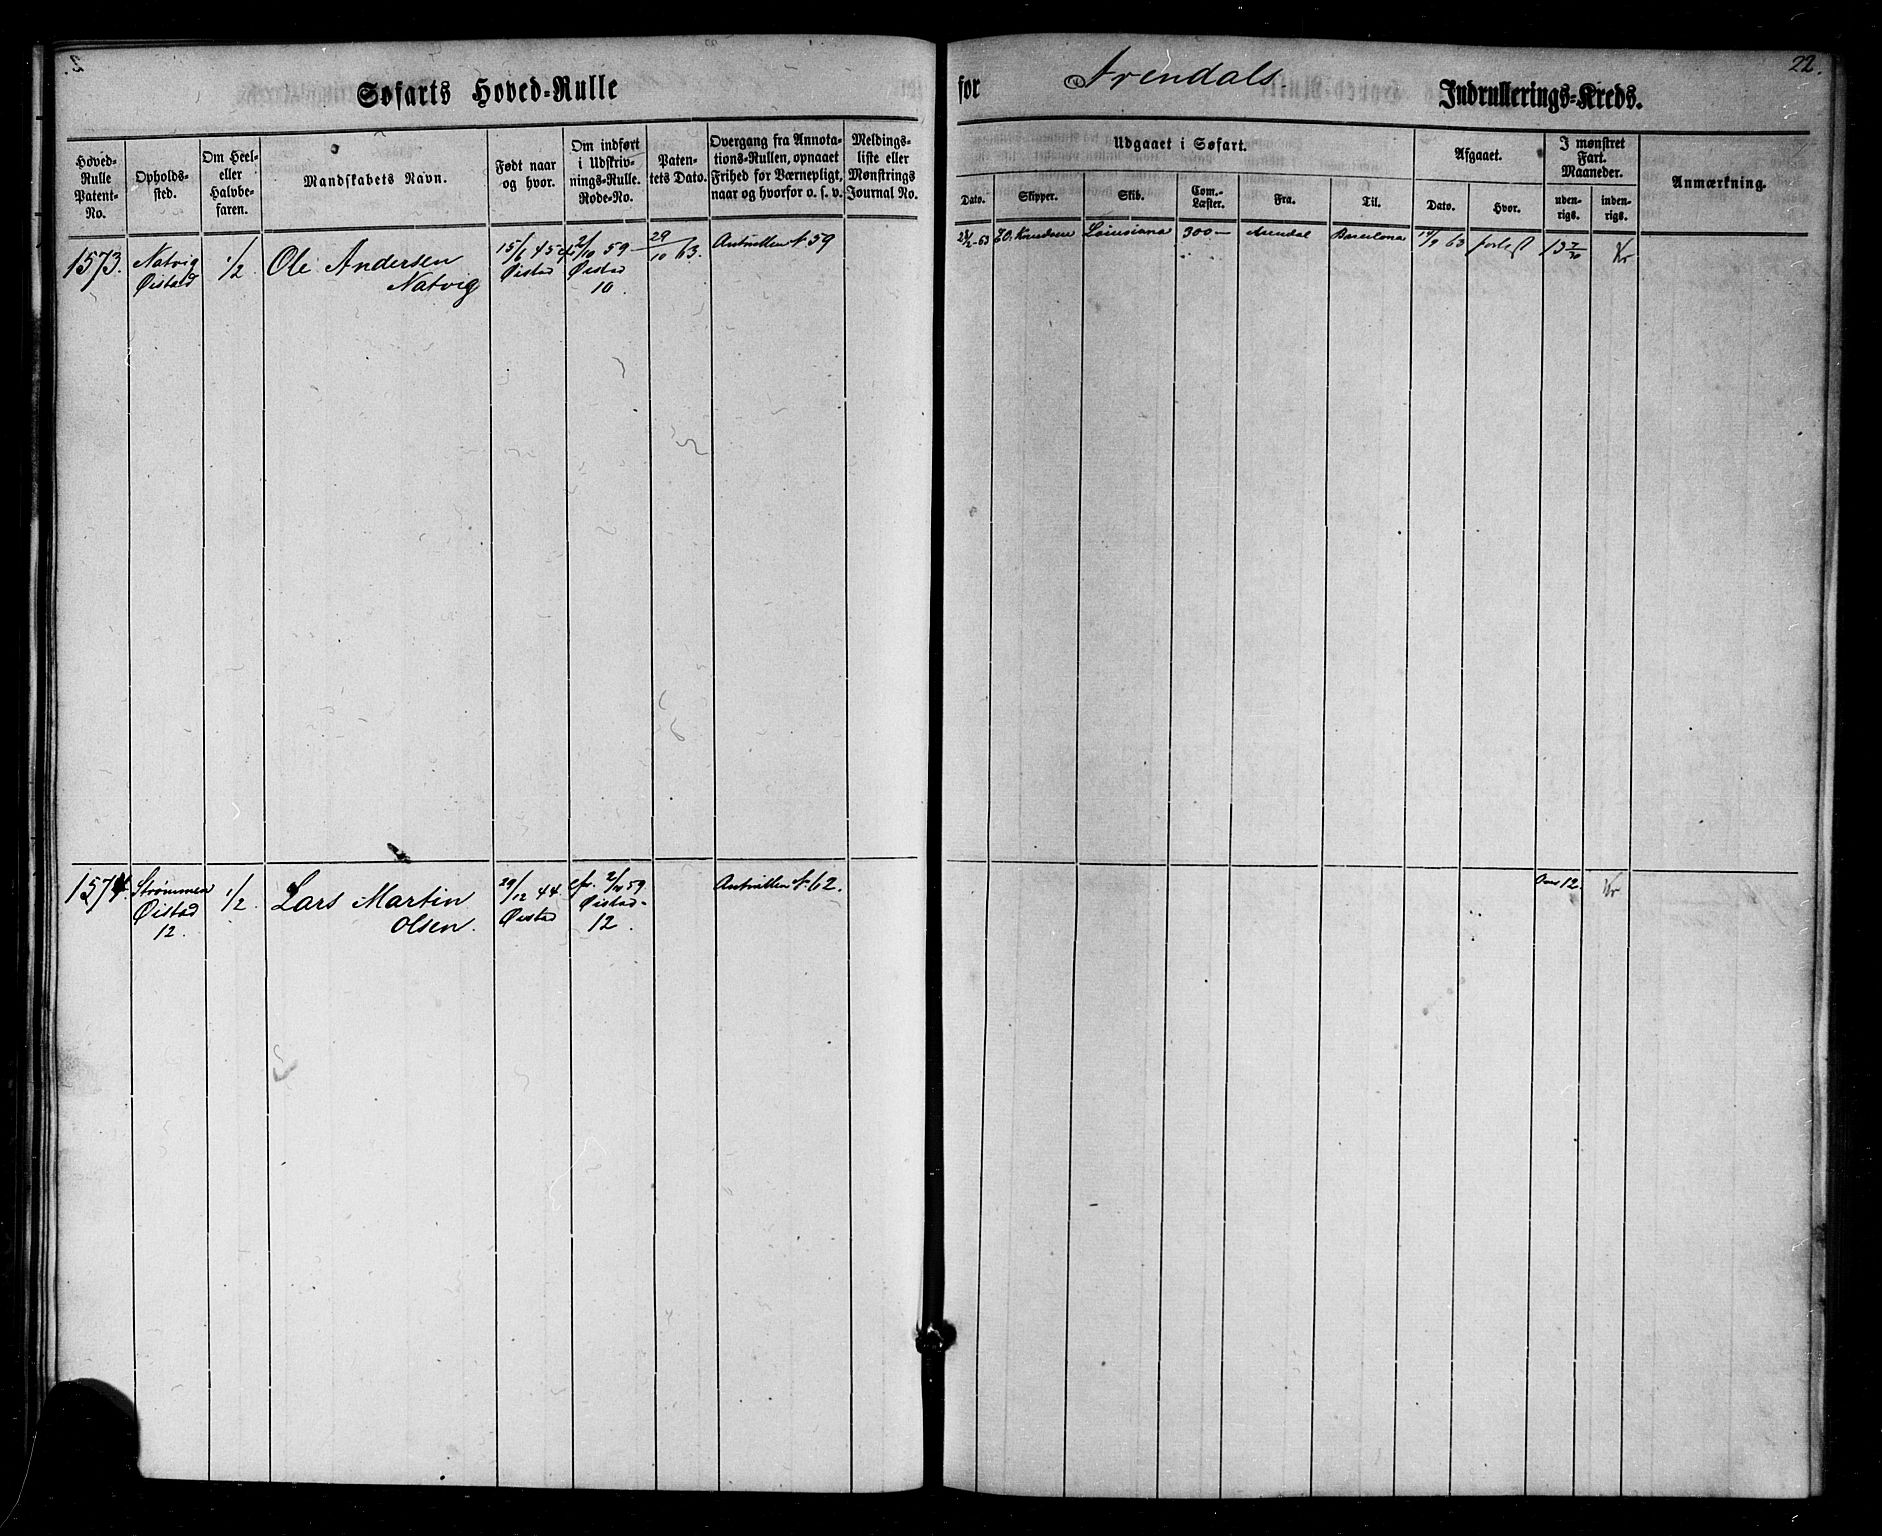 Søfarts Hoved-Rulle
for Arendals Indrullerings-Kreds.
22.
Hoved-Rulle Patent-No.
Opholds-sted.
Om Heel- eller Halvbe-faren.
Mandskabets Navn.
Født naar og hvor.
Om indført i Udskriv-nings-Rulle. Rode-No.
Paten-tets Dato.
Overgang fra Annota-tions-Rullen, opnaaet Frihed for Værnepligt, naar og hvorfor o. s. v.
Meldings-liste eller Mønstrings Journal No.
Udgaaet i Søfart.
Dato.
Skipper.
Skib.
Com.-Læster.
Fra.
Til.
Afgaaet.
Dato.
Hvor.
I mønstret Fart. Maaneder.
uden-rigs.
inden-rigs.
Anmærkning.
1573.
Natvig
Øistad
1/2
Ole Andersen
Natvig
15/6 45
Øistad
2/10 59
Øistad
10.
29/10 63.
Antrullen 59
Knudsen
Louisiana
300
Arendal
Barcelona
63
13
1574.
Strømmen
Øistad
12.
1/2.
Lars Martin
Olsen.
29/12 44.
Øistad
2/10 59
Øistad
12.
Antrullen 62.
12.